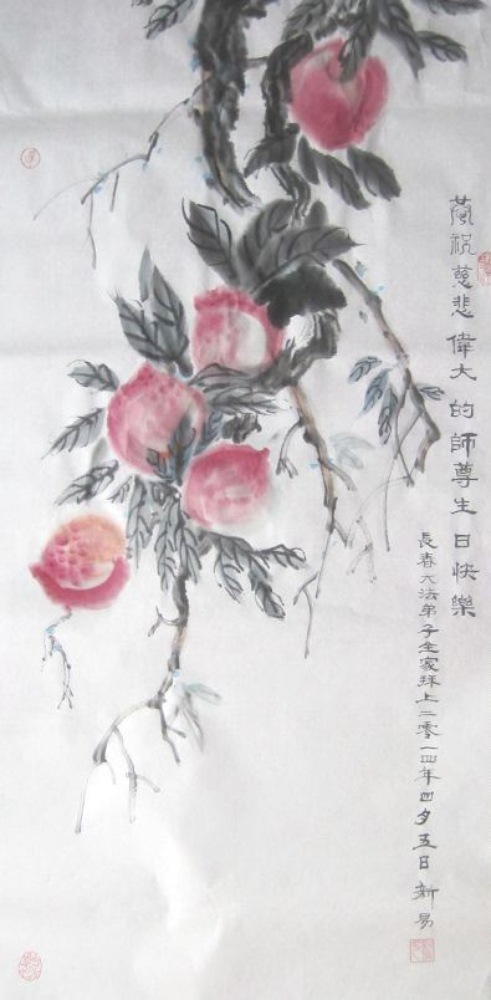 祝慈悲偉大的師尊生日快樂
長春大法弟子全家拜上二零一四年四月五日新易